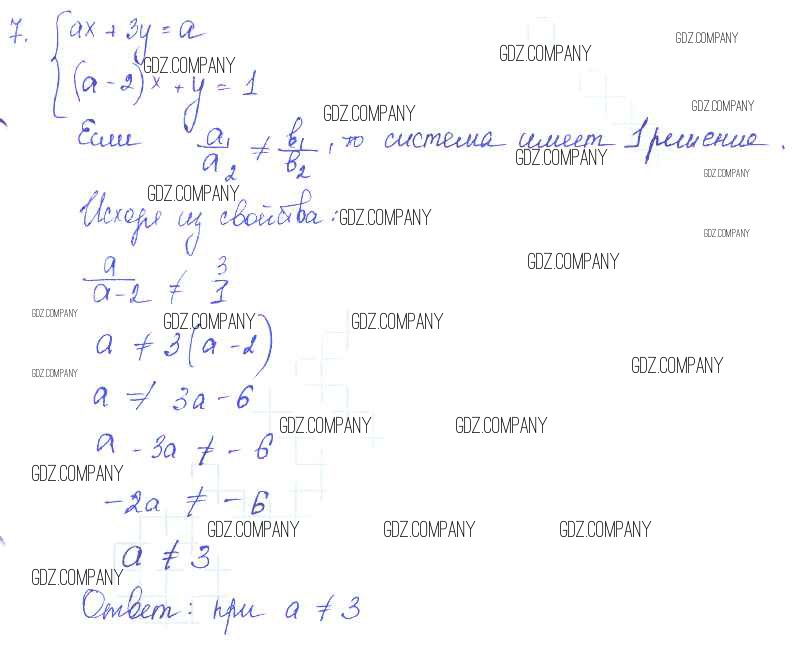 7. { ax + 3y = a
GDZ.COMPANY
GDZ.COMPANY
GDZ.COMPANY
(a - 2)x + y = 1
GDZ.COMPANY
GDZ.COMPANY
Если a₁/a₂ ≠ b₁/b₂, то система имеет 1 решение.
GDZ.COMPANY
GDZ.COMPANY
GDZ.COMPANY
Исходя из свойства:
GDZ.COMPANY
GDZ.COMPANY
GDZ.COMPANY
a/(a-2) ≠ 3/1
GDZ.COMPANY
GDZ.COMPANY
GDZ.COMPANY
a ≠ 3(a - 2)
GDZ.COMPANY
GDZ.COMPANY
a ≠ 3a - 6
GDZ.COMPANY
GDZ.COMPANY
a - 3a ≠ - 6
GDZ.COMPANY
-2a ≠ - 6
GDZ.COMPANY
GDZ.COMPANY
GDZ.COMPANY
a ≠ 3
GDZ.COMPANY
Ответ: при a ≠ 3